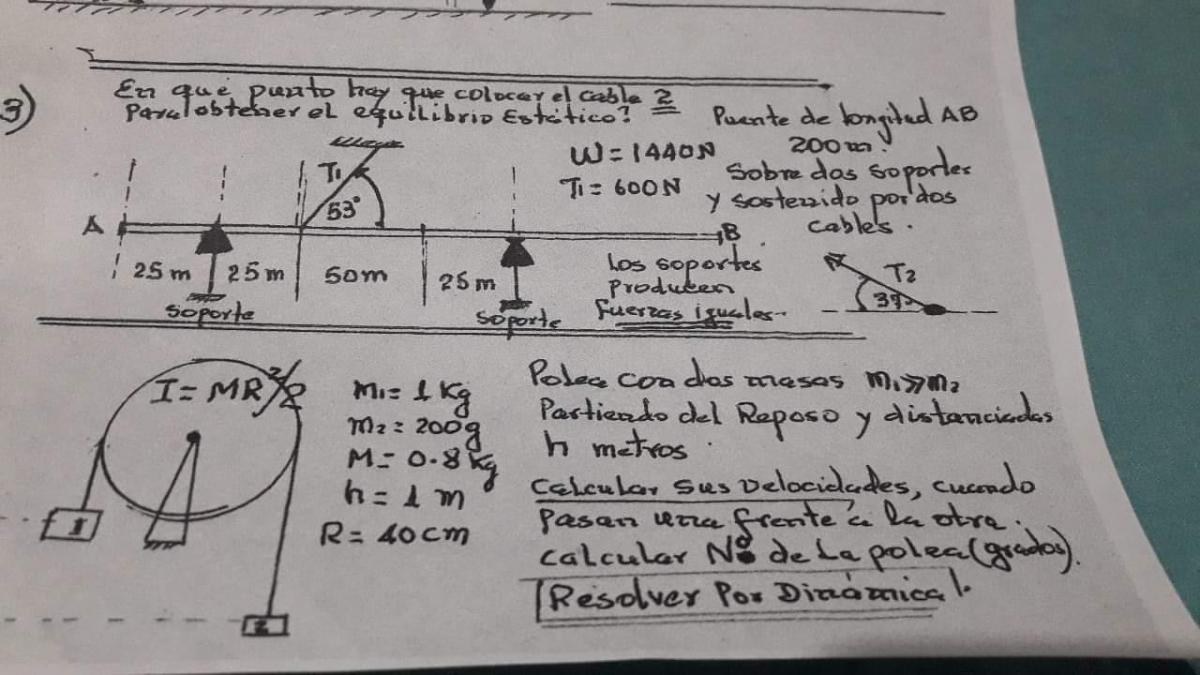 3)
En qué punto hay que colocar el cable 2
Para obtener el equilibrio Estático?
Puente de longitud AB
200 m.
Sobre dos soportes
y sostenido por dos
cables.
W = 1440N
T1 = 600N
T1
53°
A
B
25 m
25 m
50m
25 m
Soporte
Soporte
Los soportes
producen
fuerzas iguales.
T2
39°
I = MR²/2
m1 = 1 Kg
m2 = 200g
M = 0.8 kg
h = 1 m
R = 40 cm
1
2
Polea con dos masas m1>>m2
Partiendo del Reposo y distanciadas
h metros.
Calcular sus velocidades, cuando
pasan una frente a la otra.
Calcular Nº de La polea (grados).
Resolver Por Dinámica